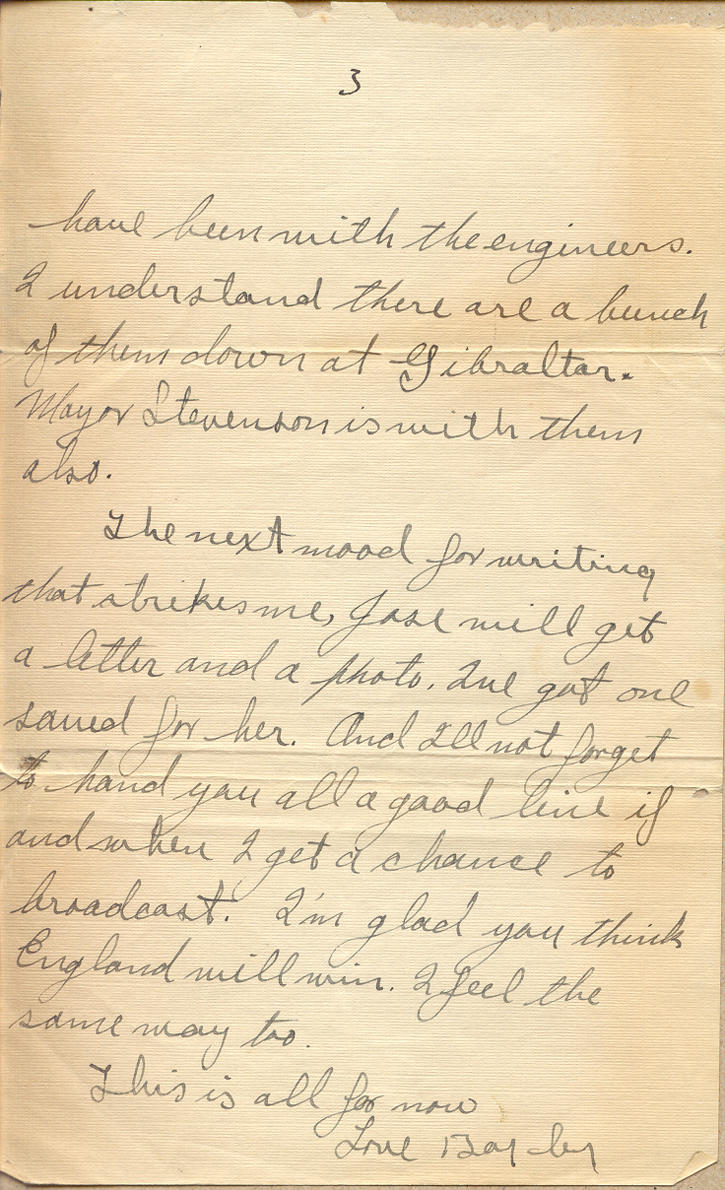 3
have been with the engineers.
I understand there are a bunch
of them down at Gibraltar.
Mayor Stevenson is with them
also.
The next mood for writing
that strikes me, Jose will get
a letter and a photo. I've got one
saved for her. And I'll not forget
to hand you all a good line if
and when I get a chance to
broadcast. I'm glad you think
England will win. I feel the
same way too.
This is all for now
Love